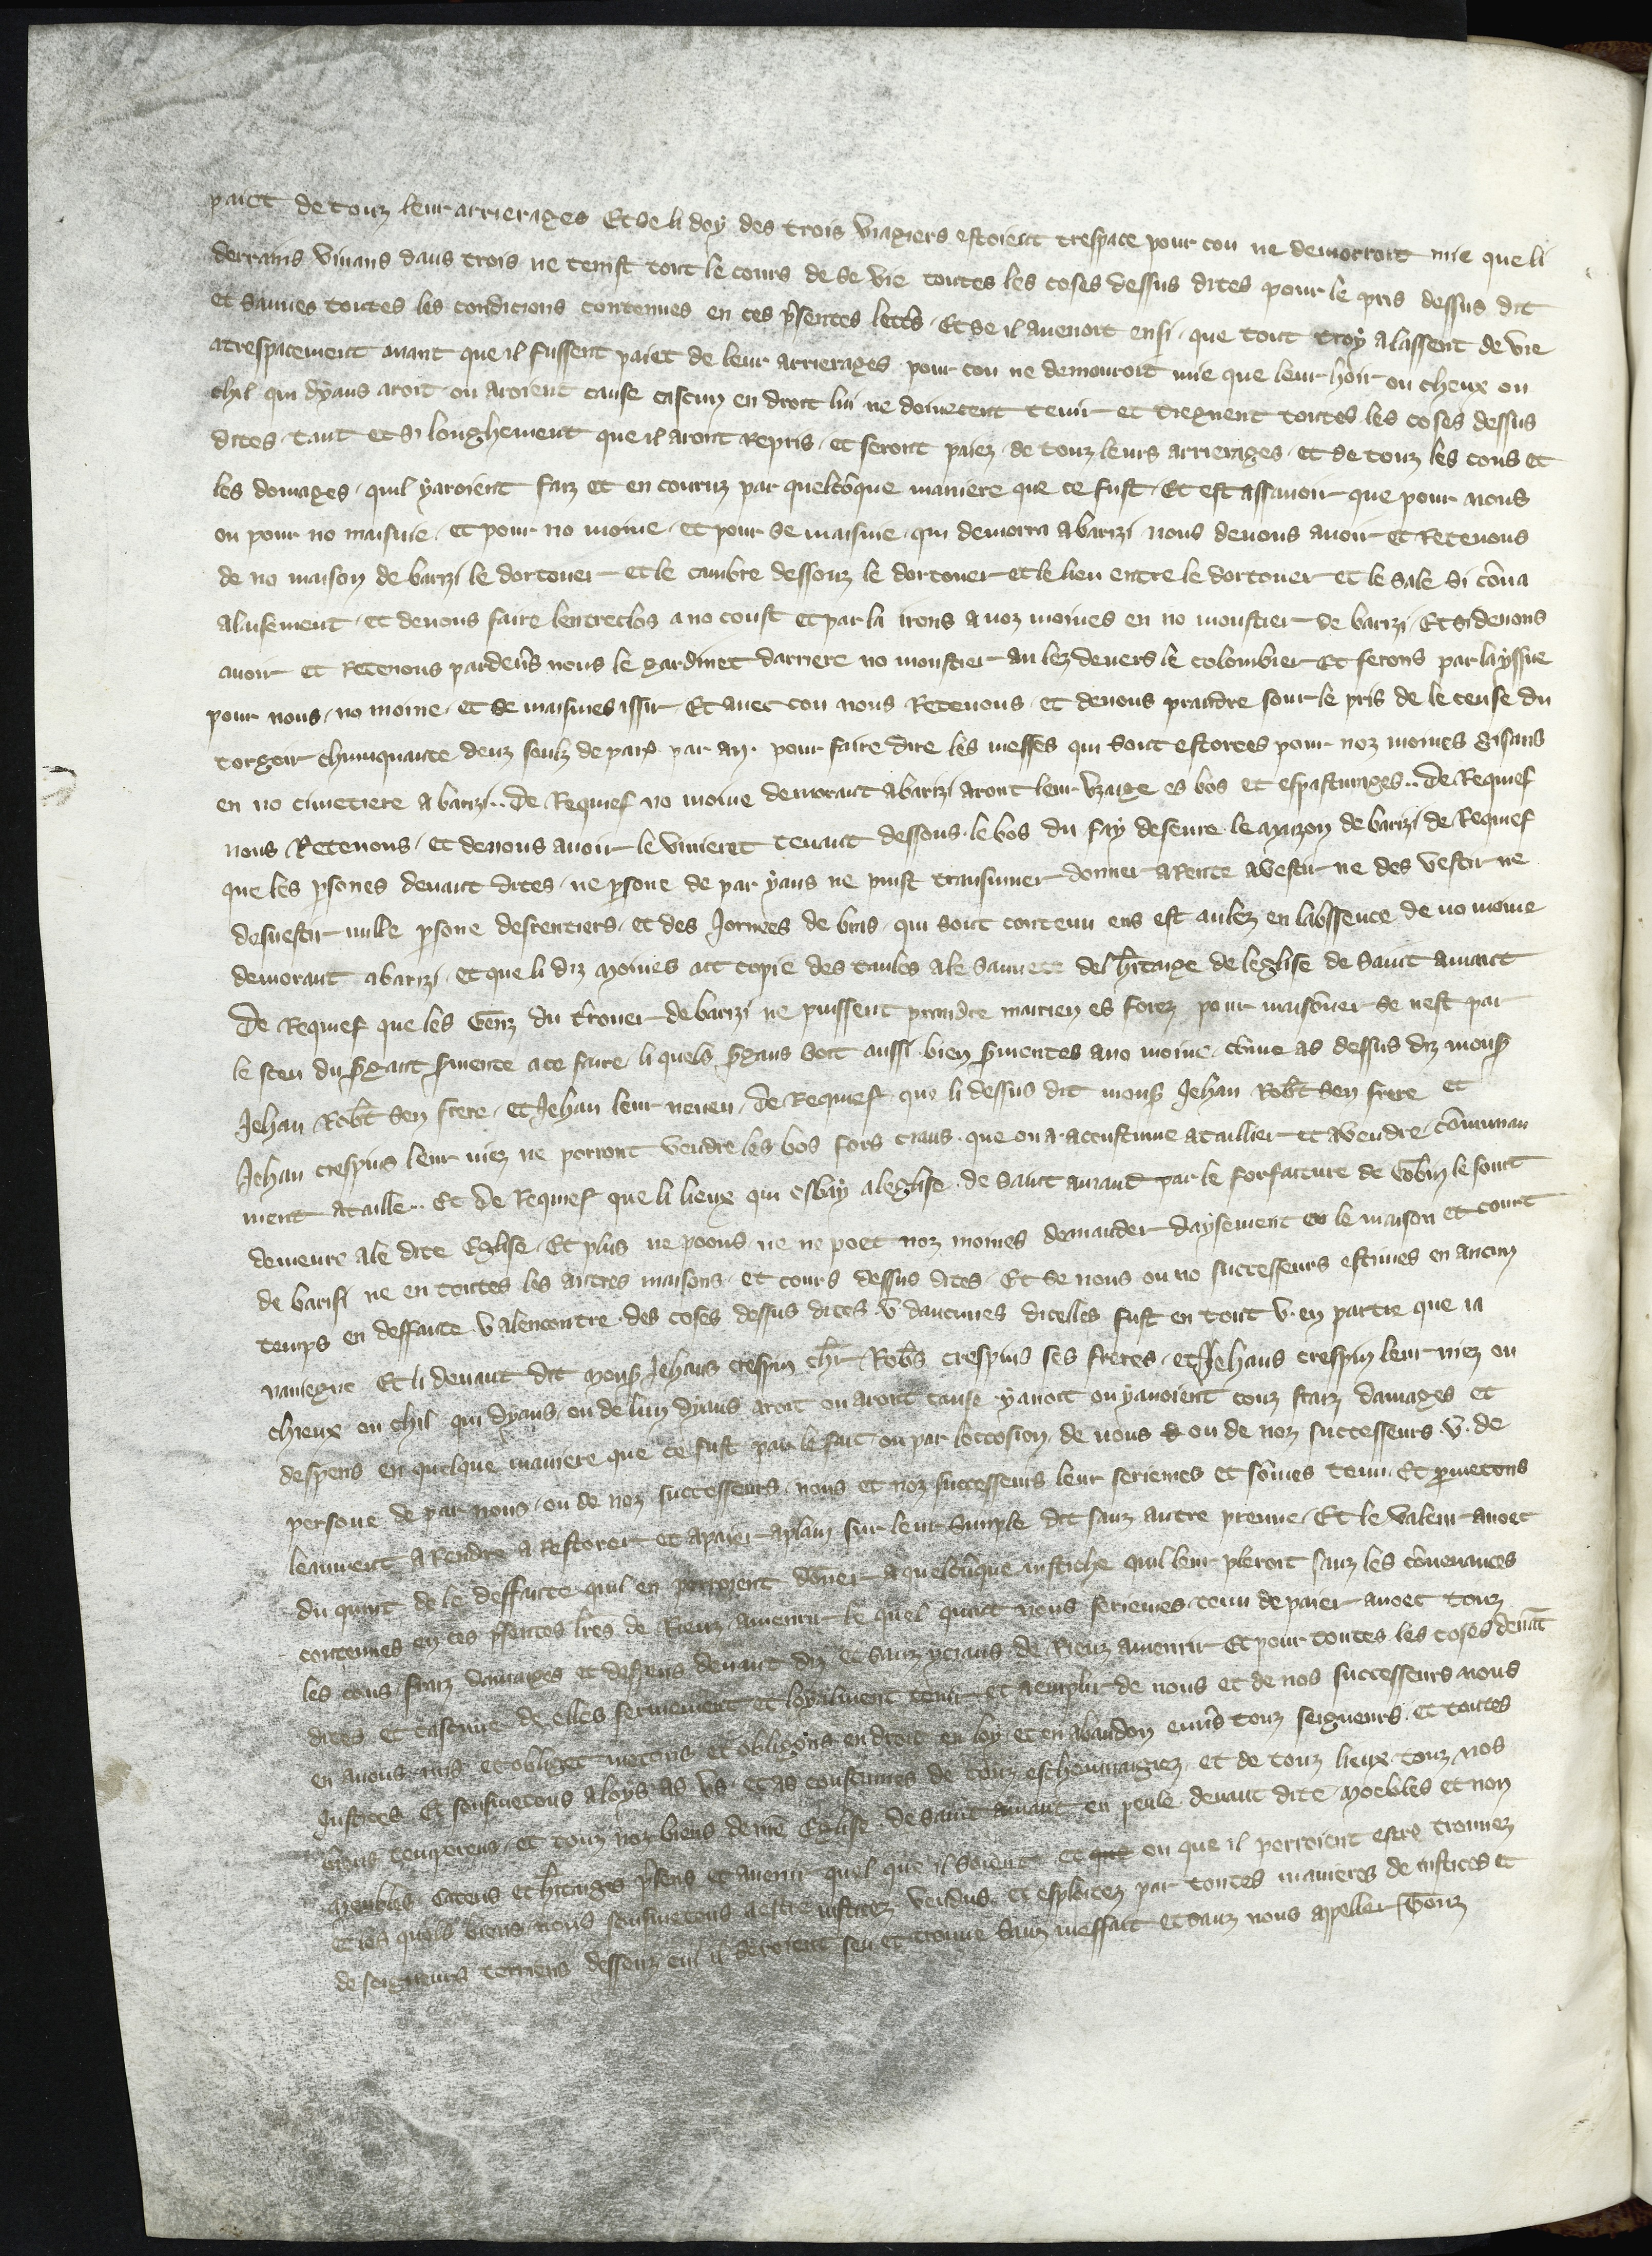 paiet de touz leur arrierages Et se li doy des trois viagiers estoient trespace pour cou ne demorroit mie que li
derrains vivans daus trois ne tenist tout le cours de se vie toutes les coses dessus dites pour le pris dessus dit
et sauves toutes les condicions contenues en ces p̄sentes lett̄s · Et se il avenoit ensi · que tout troy alassent de vie
atrespacement avant que il fussent paiet de leur arrierages pour cou ne demouroit mie que leur hoir ou cheux ou
chil qui dyaus aroit ou aroient cause cascun en droit lui ne doivetent tenir et tiegnent toutes les coses dessus
dites · tant et si longhement que il aront repris · et seront paiez · de touz leurs arrierages · et de touz les cous et
les domages · quil yaroient faiz et encouruz par quelcōque maniere que ce fust · Et est assavoir que pour nous
ou pour no maisnie · et pour no moine · et pour se maisnie · qui demorra a barizi nous devons avoir et Retenons
de no maison de barizi le dortouer et le cambre dessouz le dortouer et le lieu entre le dortouer et le sale si cōm a
alaisement · et devons faire lentreclos a no coust et par la irons a noz moines en no moustier de barizi · Et si devons
avoir et Retenons pardev̄s nous le gardinet darriere no moustier au lez devers le colombier Et ferons par layssue
pour nous · no moine · et se maisnies issir · Et avec cou nous Retenons · et devons prandre sour le pris de le cense du
torgoir chuinquante deuz soulz de par̄ · par an · pour faire dire les messes qui sont estorees pour noz moines gisans
en no cimetiere a barizi .. de Requief no moine demorant abarizi aront leur uzaige es bos et es pasturages .. de Requief
nous Retenons · et devons avoir le vivieret tenant dessous · le bos du fay deseure · le maizon de barizi · de Requief
que les p̄sones devant dites · ne p̄sone de par yaus ne puist transmuer donner a Rente a vestir ne des vestir ne
desvestir nulle p̄sone des rentiers · et des Jornees de bras · qui sont contenu ens est aulez en labssence de no moine
demorant abarizi · et que li diz moines ait copie des taules a le sauvete del h̄itaige de leglise de saint amant
De Requief que les Genz du t̄rouer de barizi ne puissent prandre mairien es forez pour maisōner se nest par
le sceu du s̄gant s̄mente a ce faire · li quels s̄gans soit aussi bien s̄mentes a no moine · cōme as dessus diz mons̄
Jehan Rob̄t sen frere · et Jehan leur neveu · de Requief · que li dessus dit mons̄ Jehan Rob̄t sen frere et
Jehan crespins leur niez ne porront vendre les bos fors ciaus · que on a accustume a taillier et a vendre cōmunau
ment a taille .. Et de Requief que li lieux qui eschay aleglise · de saint amand par le forfaiture de Gobin le sont
demeure a le dite Eglise · Et plus ne poons ne ne poet noz moines demander daysement en le maison et court
de barisi ne en toutes les autres maisons · et cours dessus dites · Et se nous ou no successeurs estiemes en aucun
temps en deffaute · v alencontre · des coses dessus dites · v daucunes dicelles fust en tout v · en partie que ia
naviegne Et li devant dit mons̄ Jehans crespin ch̄r · Rob̄s crespins ses freres · et Jehans crespin leur niez ou
chieux ou chil qui dyaus · ou de lun dyaus aroit ou aront cause yavoit ou yavoient couz fraiz damages et
despens en quelque maniere que ce fust par le fait ou par loccosion de nous ou de noz successeurs · v · de
persone de par nous · ou de noz successeurs · nous et noz successeurs leur seriemes et sōmes tenu · Et p̄metons
leaument a Rendre a Restorer et apaier aplain sur leur simple dit sanz autre preuve · Et le valeur avoec
du quint de le deffaute quil en porroient dōner aquelcūque iustiche quil leur pleroit sanz les cōvenances
contenues en ces p̄sentes lr̄es de Rienz amenrir le quel quint nous seriemes tenu de paier avoec touz
les cous fraiz damages et despens devant diz et sanz yciaus de Rienz amenrir Et pour toutes les coses devāt
dites et cascune delles fermement et loyalment tenir et aemplir de nous et de nos successeurs nous
en avons mis et obliget metons et obligons en droit en loy et en abandon env̄s touz seigneurs · et toutes
Justices Et sousmetons a loys as us · et as coustumes de touz eschevinaigiez · et de touz lieux touz nos
biens temporeus · et touz noz biens de no Eglise · de saint amant en peule devant dite · moebles et non
meubles Cateus et h̄itages p̄sens et avenir quel que il soient et ou que il porroient estre trouvez
et les quels biens nous sousmetons a estre iusticiez vendus et esploitez par toutes manieres de iustices et
de seigneurs terriens dessouz cui il seroient seu et trouve sanz meffait et sanz nous apeller Touz